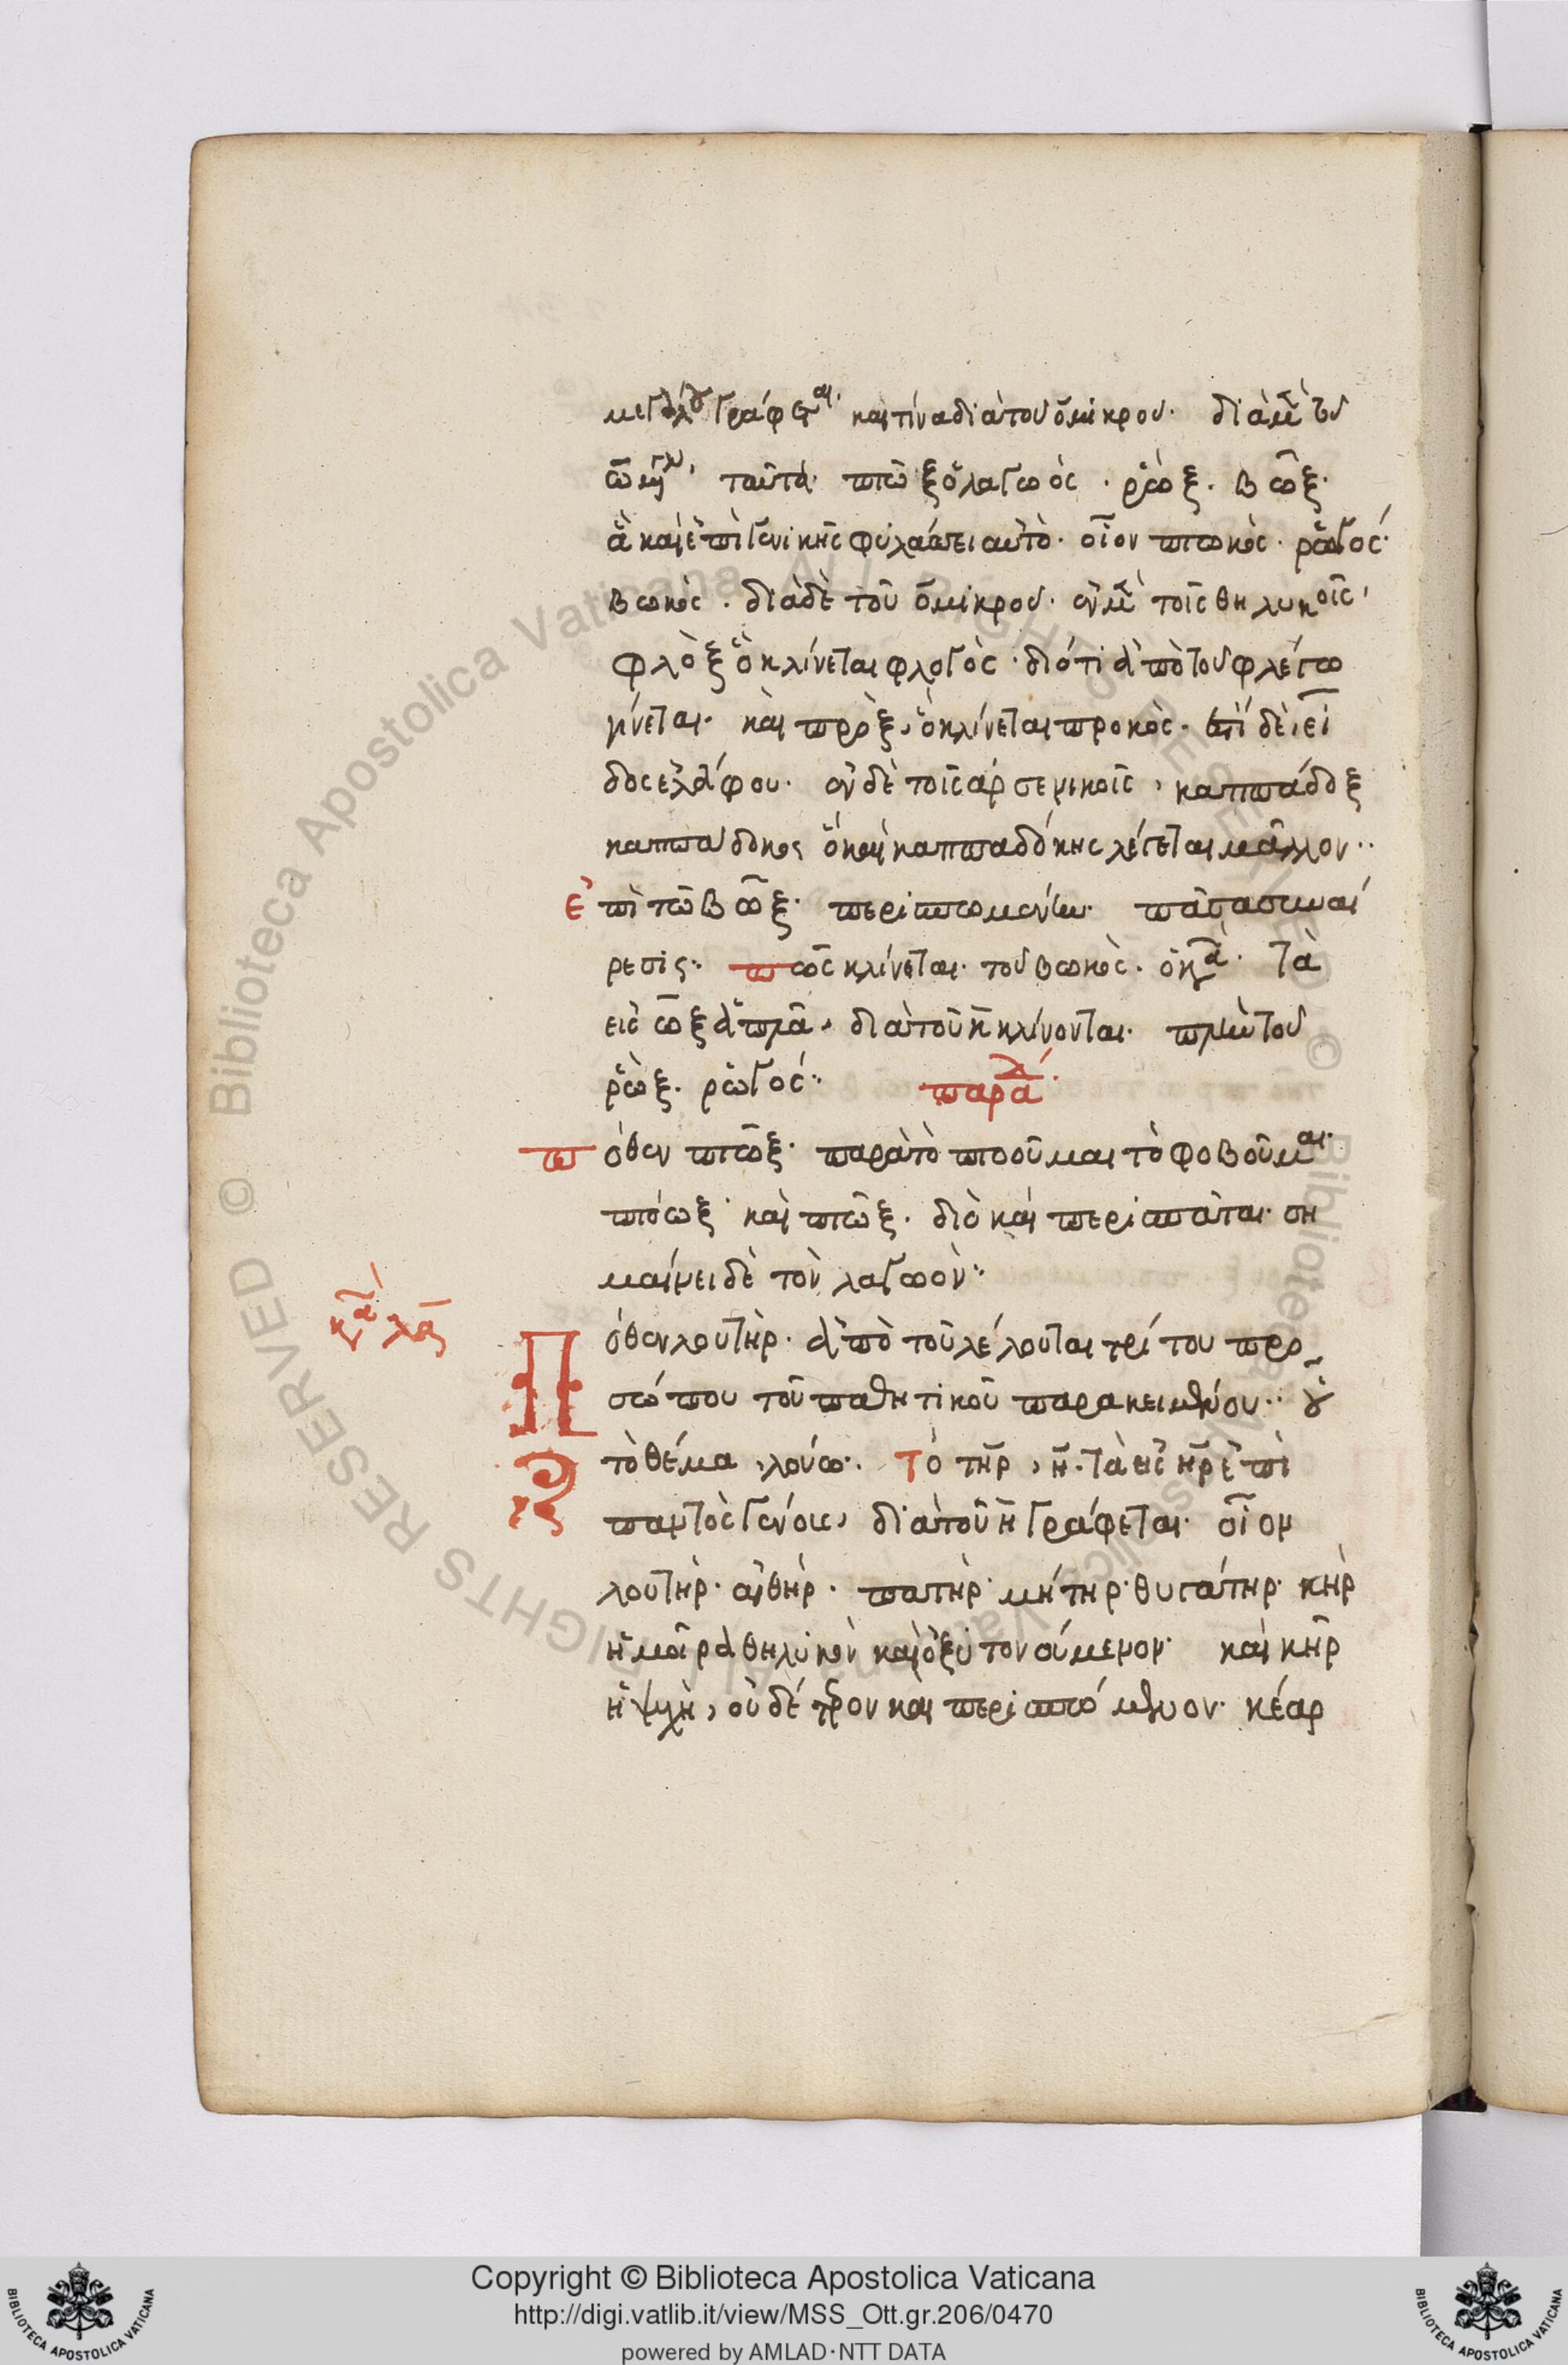 μεγάλου γράφεται· καὶ τίνα διὰ τοῦ ὂ μικροῦ· διὰ μὲν τοῦ
ταῦτα· πτὼξ ὁ λαγωὸς · ῥὼξ · βῶξ·
ἃ καὶ ἐπὶ γενικῆς φυλάττει αὐτὸ· οἷον πτωκὸς · ῥωγός·
βωκὸς · διὰ δὲ τοῦ ὂ μικροῦ· ἐν μὲν τοῖς θηλυκοῖς,
φλὸξ ὃ κλίνεται φλογὸς · διότι ἀπὸ τοῦ φλέγω
γίνεται· καὶ πρὸξ, ὃ κλίνεται προκὸς · ἔστι δὲ εἶ
δος ἐλάφου· ἐν δὲ τοῖς ἀρσενικοῖς, καππάδοξ
καππάδοκος ὃ καὶ καππαδόκης λέγεται μᾶλλον··
ἐπὶ τῶ βῶξ· περισπωμένων· πᾶσα συναί
ρεσις·· πῶς κλίνεται· τοῦ βωκὸς · Τὰ
εἰς ωξ ἁπλᾶ, διὰ τοῦ κ κλίνονται· πλὴν τοῦ
ῥὼξ · ῥωγός··
πόθεν πτῶξ· παρὰ τὸ πτοοῦμαι τὸ φοβοῦμαι·
πτόωξ καὶ πτῶξ · διὸ καὶ περισπᾶται· ση
μαίνει δὲ τὸν λαγωὸν··
Πόθεν λουτὴρ · ἀπὸ τοῦ λέλουται τρίτου προ
σώπου τοῦ παθητικοῦ παρακειμένου·· οὗ
τὸ θέμα, λούω· Τὸ τηρ, η · Τὰ εἰς ηρ ἐπὶ
παντὸς γένους, διὰ τοῦ η γράφεται· οἷον
λουτὴρ · αἰθὴρ · πατὴρ · μήτηρ · θυγάτηρ · κὴρ
ἡ μοῖρα θηλυκὸν καὶ ὀξύτονούμενον· καὶ κῆρ
ἡ ψυχὴ, οὐδέτερον καὶ περισπώμενον· κέαρ
Copyright © Biblioteca Apostolica Vaticana
http://digi.vatlib.it/view/MSS_Ott.gr.206/0470
powered by AMLAD·NTT DATA
BIBLIOTECA APOSTOLICA VATICANA
BIBLIOTECA APOSTOLICA VATICANA